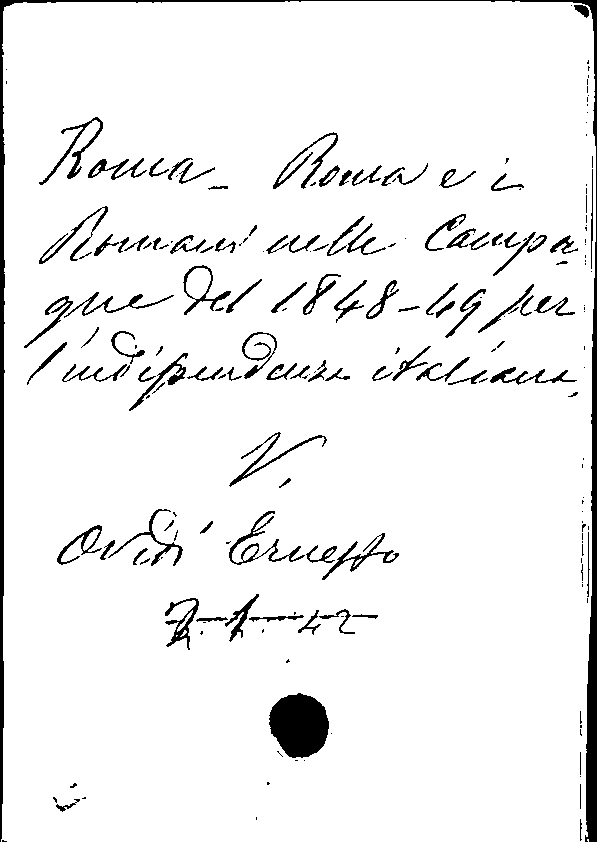 Roma - Roma e i
Romani nelle Campa-
gne del 1848-49 per
l'indipendenza italiana.
V.
Ovidi Ernesto
42